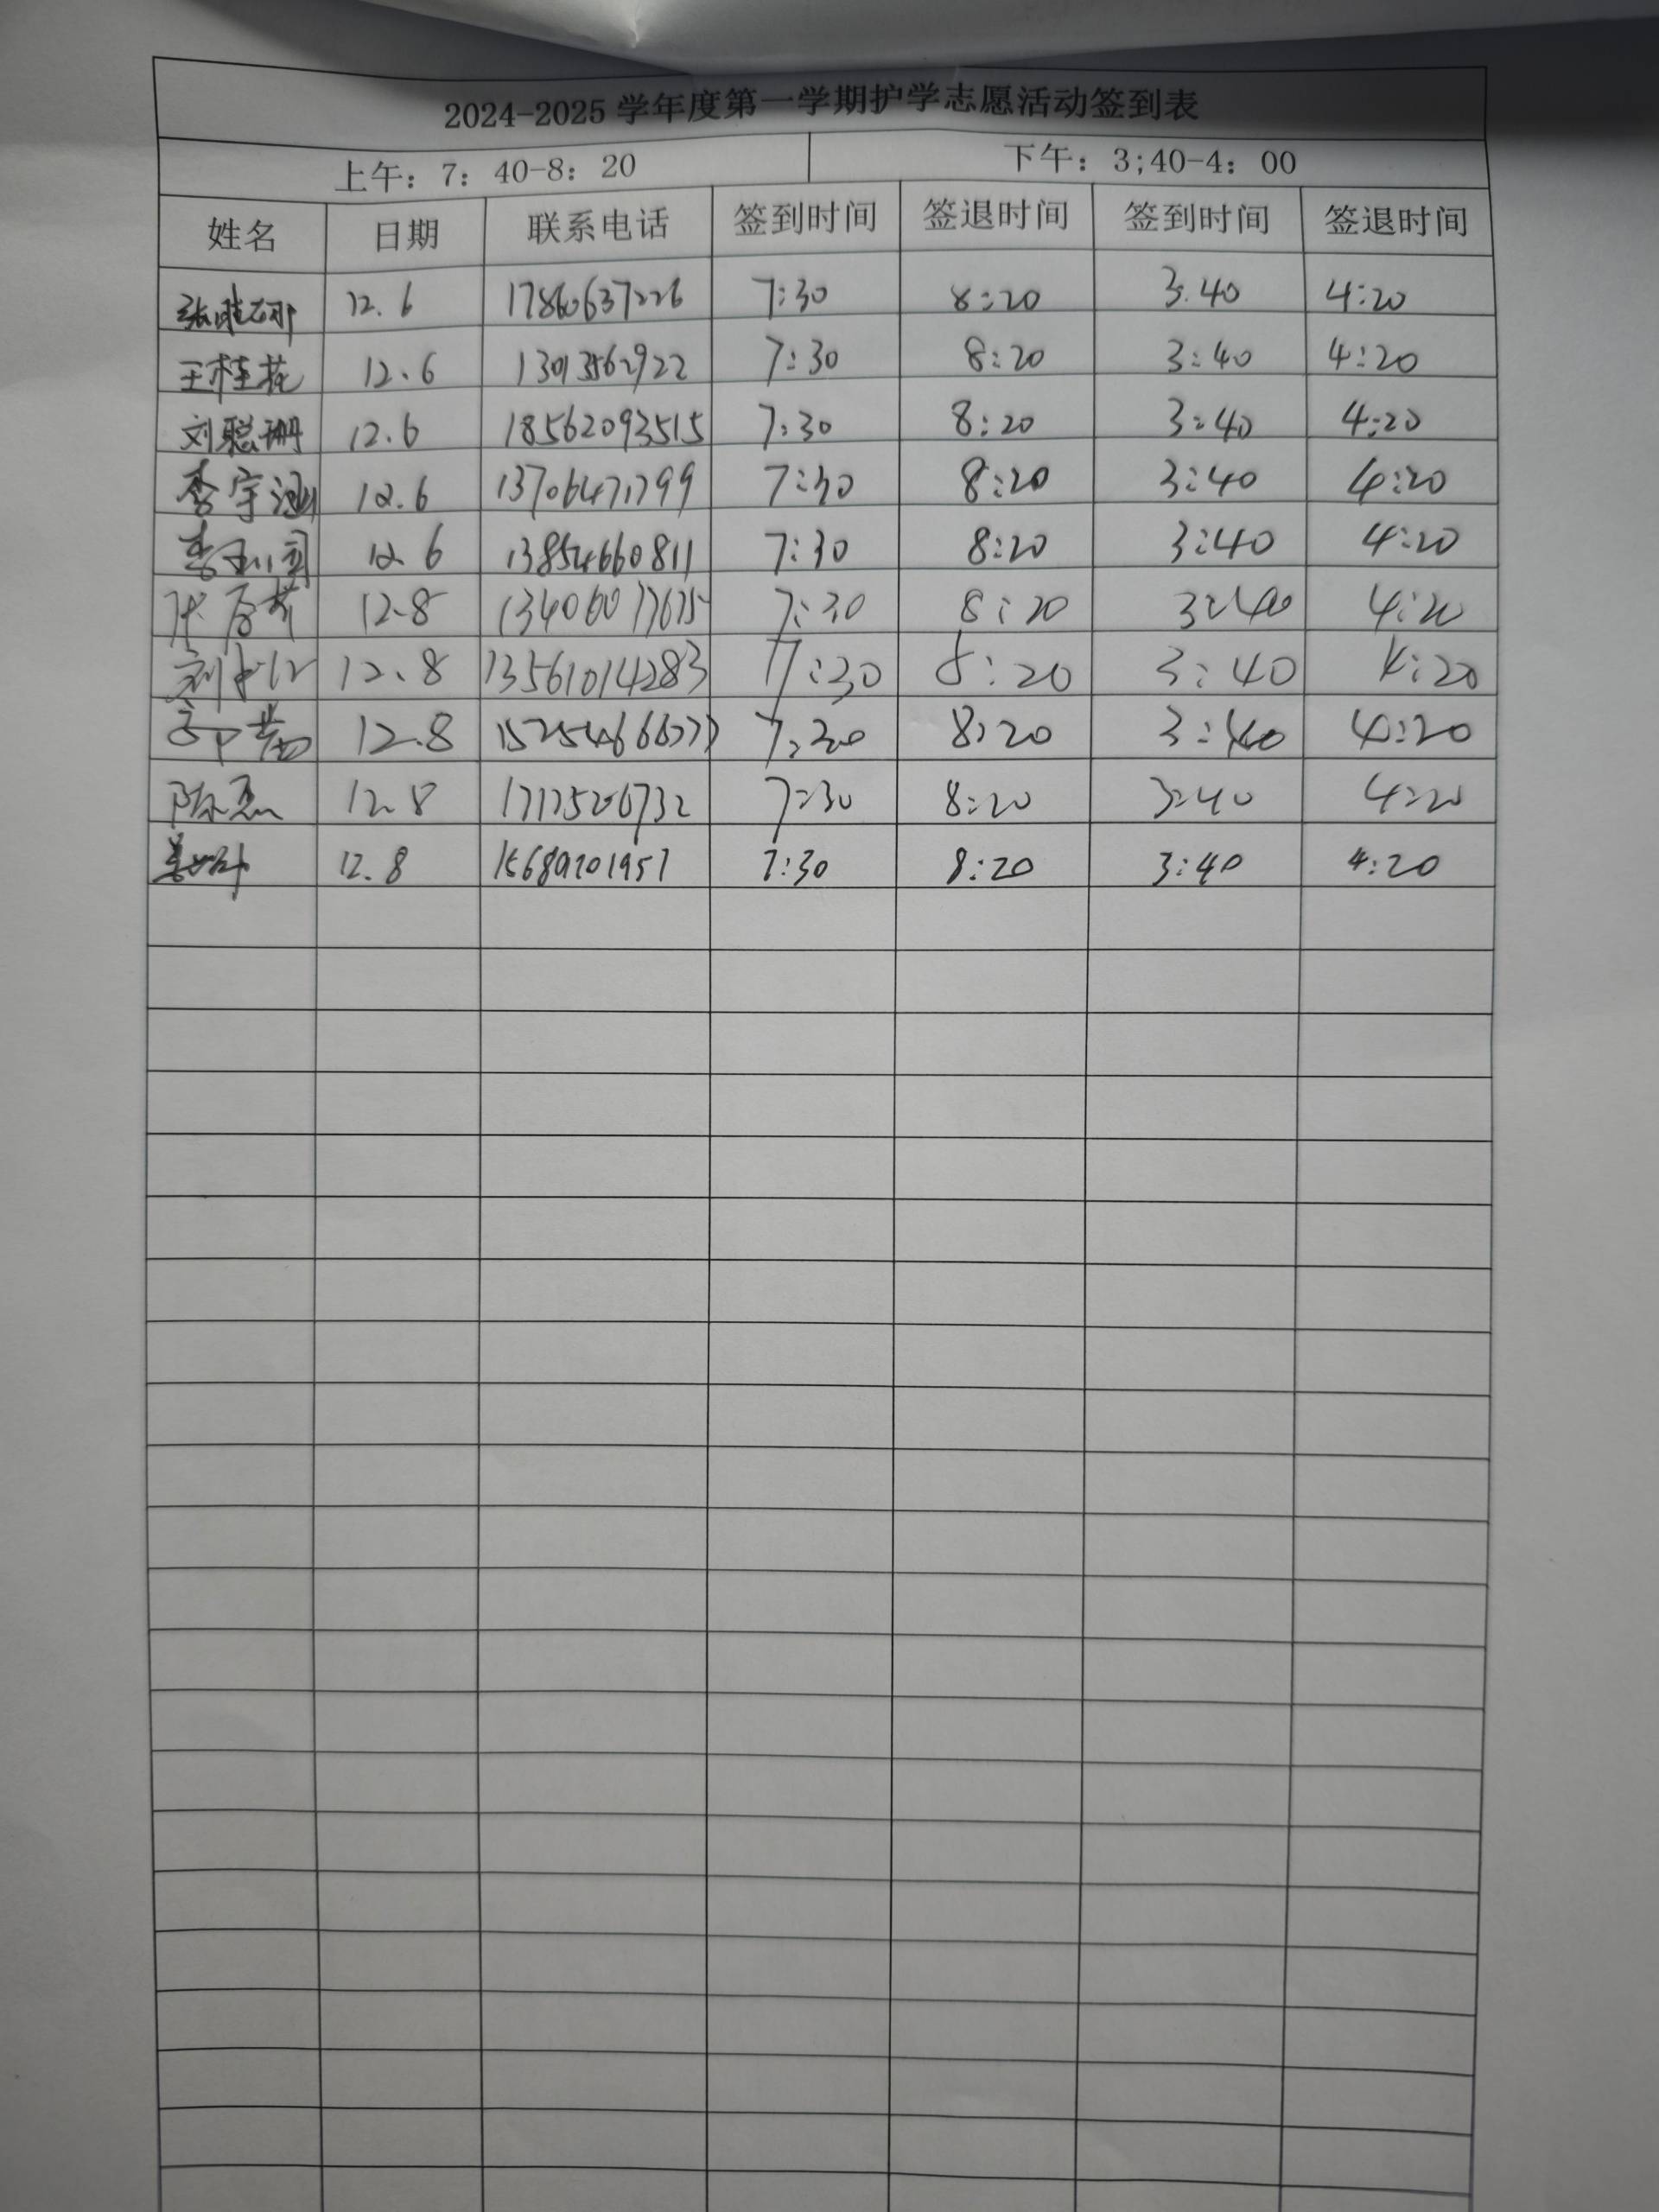 2024-2025 学年度第一学期护学志愿活动签到表
上午：7：40-8：20 下午：3;40-4：00
姓名 日期 联系电话 签到时间 签退时间 签到时间 签退时间
12.6 17860637226 7:30 8:20 3:40 4:20
王桂花 12.6 7:30 8:20 3:40 4:20
刘聪珊 12.6 18562093515 7:30 8:20 3:40 4:20
李宇涵 12.6 13706471799 7:30 8:20 3:40 4:20
12.6 13854660811 7:30 8:20 3:40 4:20
12.8 13406077675 7:30 8:20 3:40 4:20
12.8 13561014283 7:30 8:20 3:40 4:20
12.8 7:30 8:20 3:40 4:20
12.8 7:30 8:20 3:40 4:20
12.8 7:30 8:20 3:40 4:20